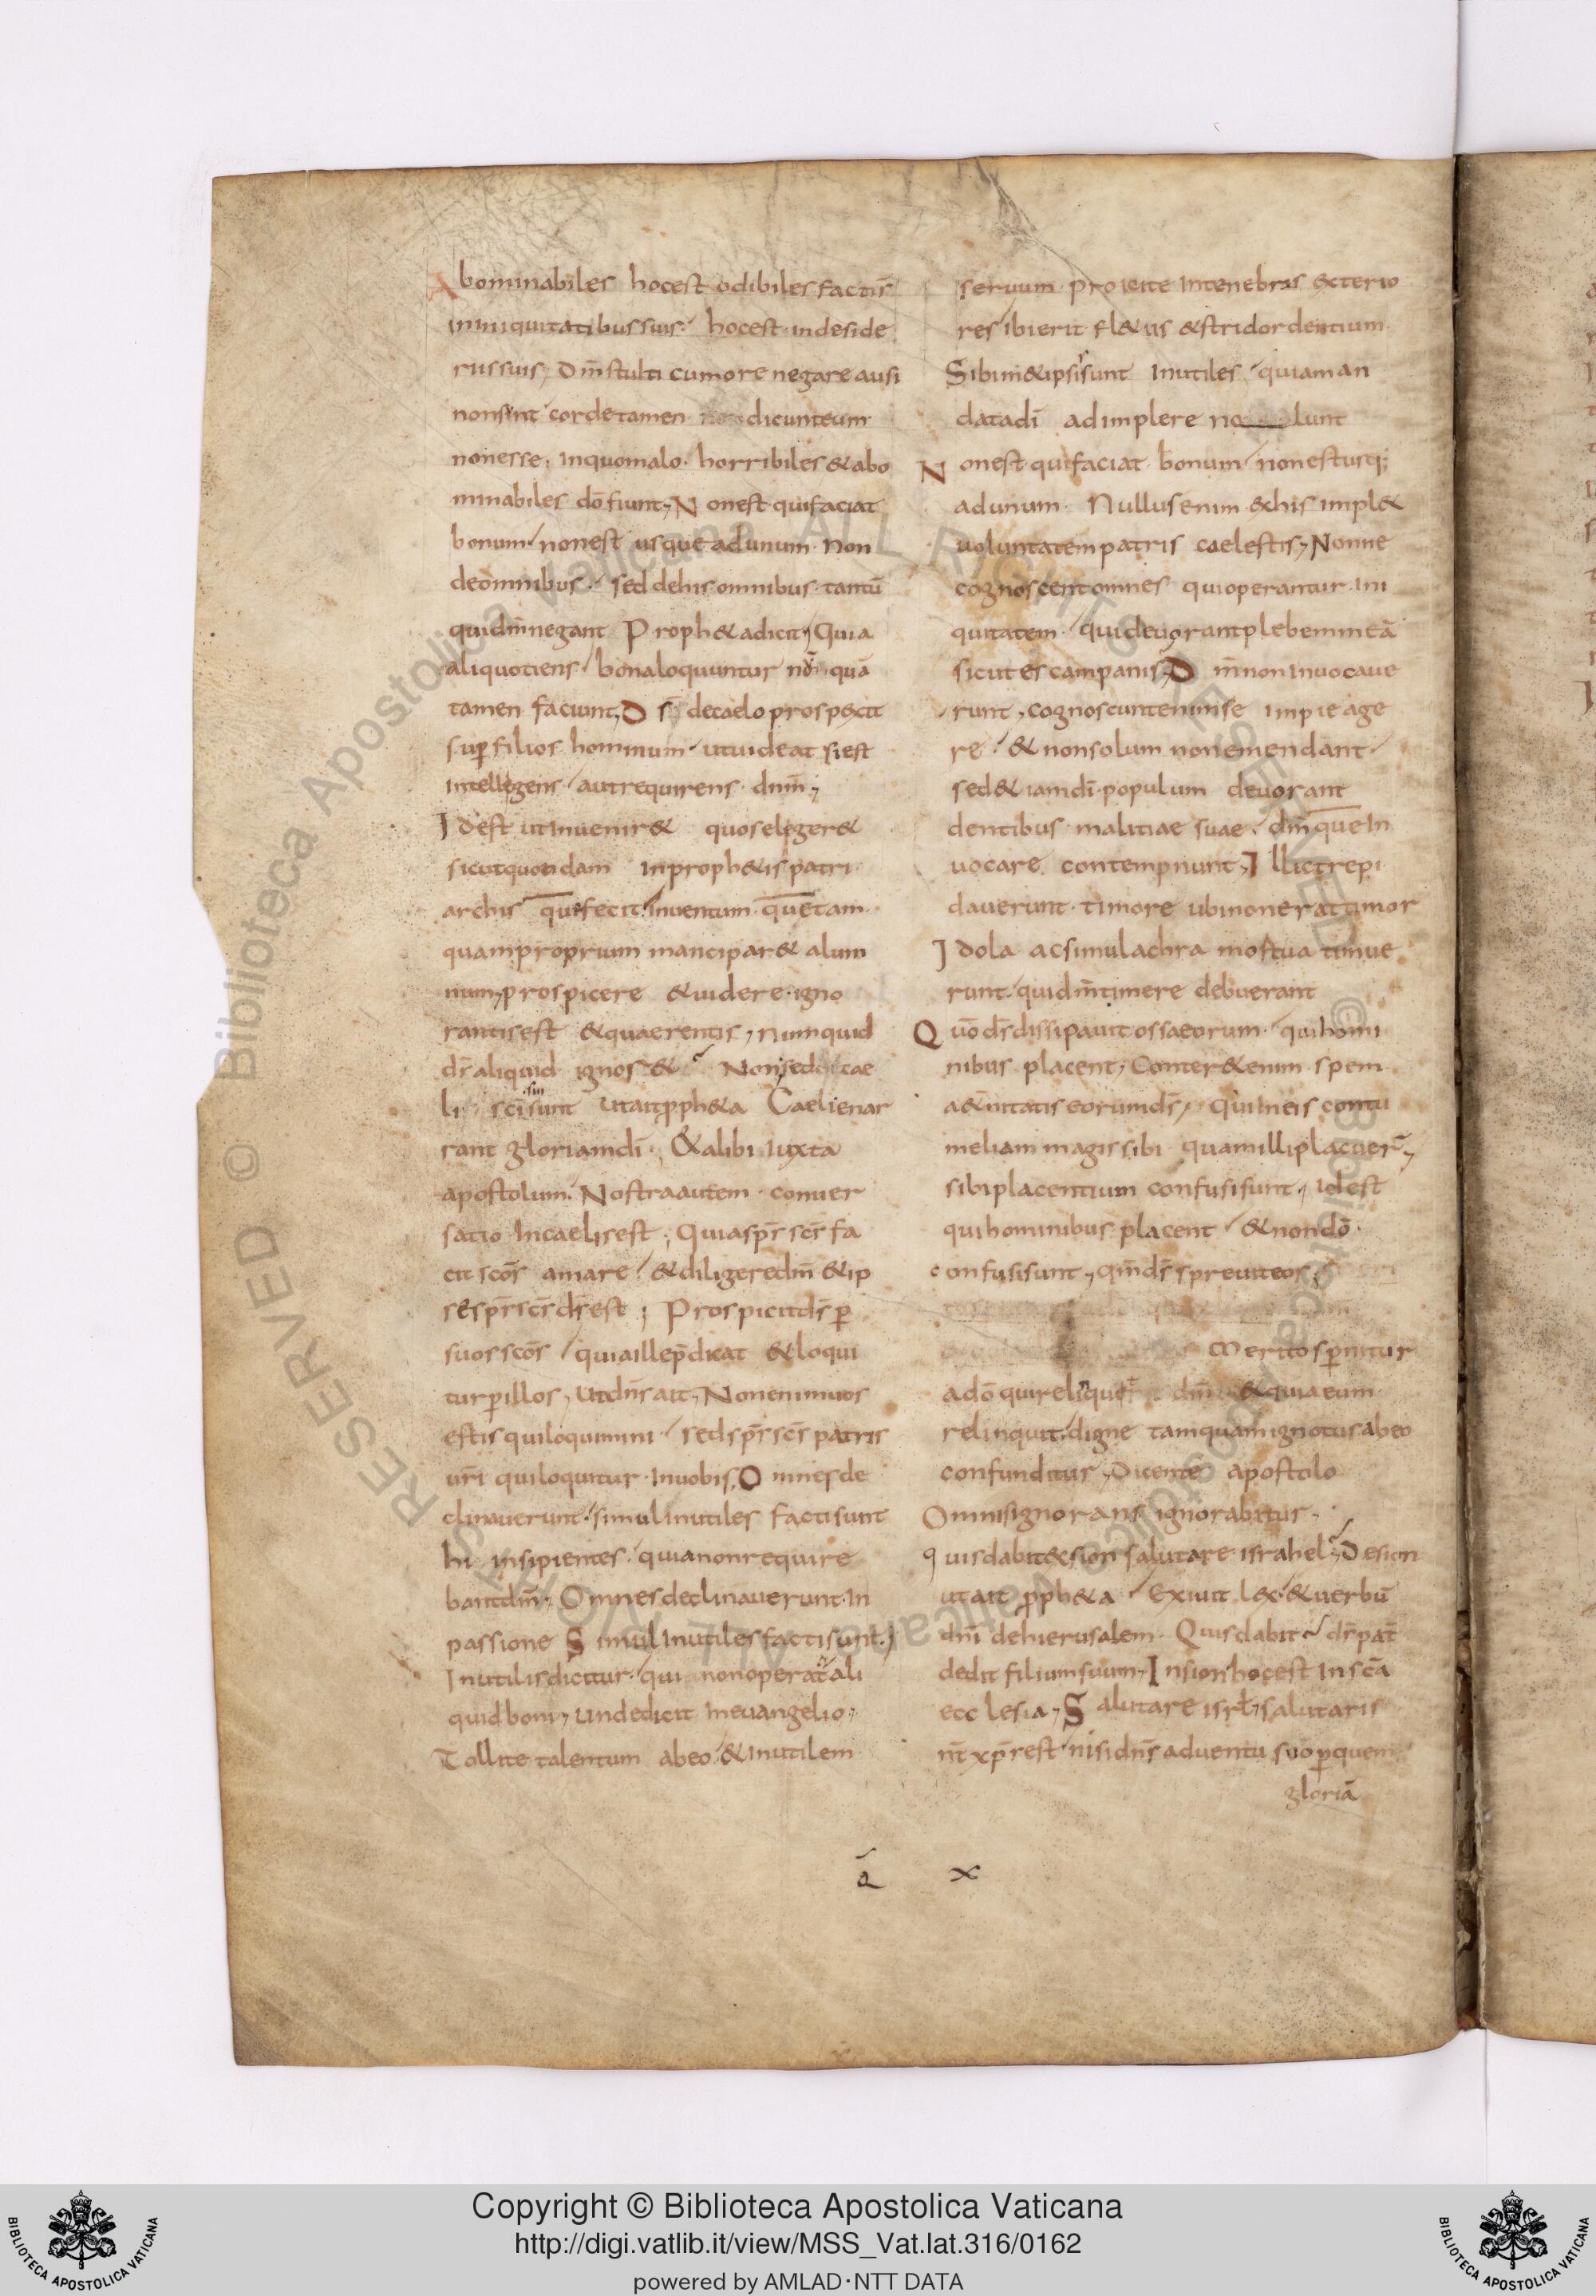 Abominabiles hocest odibiles factis͞
ininiquitatibussuis. hocest indeside
riissuis, Dm̄stulti cumore negareausi
nonsint cordetamen dicunteum
nonesse. inquomalo horribiles&abo
minabiles dō fiunt, Nonest quifaciat
bonum nonest usqueadunum. Non
deomnibus. sed dehisomnibus tantū
quidm̄negant Proph&adicit, Quia
aliquotiens bonaloquuntur quā
tamen faciunt, Ds̄ decaelo prospexit
sup̄ filios hominum utuideat siest
intellegens autrequirens dnm̄,
Idest utinuenir& quoseleger&
sicutquondam inproph&is patri
archis quēfecit inuentum quētam
quamproprium mancipar& alum
num, prospicere &uidere igno
rantisest &quaerentis, numquid
ds̄ aliquid ignos& Nonsed cae
li sc̄i sunt utaitpph&a Caelienar
rant gloriamdī, &alibi iuxta
apostolum. Nostraautem conuer
satio incaelisest, Quiasps̄ scs̄ fa
cit scōs amare &diligeredm̄ &ip
sesps̄scs̄ds̄est; Prospicitds̄ p̄
suosscōs quiaillep̄dicat &loqui
turp̄illos, utdns̄ait, Nonenimuos
estisquiloquimini sedsps̄scs̄ patris
urī quiloquitur inuobis, Omnesde
clinauerunt. simulinutiles factisunt
hi insipientes quianonrequire
bantdm̄. Omnesdeclinauerunt in
passione Simulinutilesfactisunt,
Inutilisdicitur. qui nonoperat̄ ali
quidboni, undedicit ineuangelio,
Tollite talentum abeo &inutilem
seruum proicite intenebras exterio
res ibierit fl&us &stridordentium
Sibim&ipsisunt inutiles quiaman
datadī adimplere lunt
Nonest quifaciat bonum nonestusq;
adunum. Nullusenim exhis impl&
uoluntatempatris caelestis, Nonne
cognoscentomnes quioperantur ini
quitatem quideuorantplebemmeā
sicut escampanis, Dm̄noninuocaue
runt, cognoscuntenimse impie age
re. &nonsolum nonemendant
sed&iamdī populum deuorant
dentibus malitiae suae. dm̄quein
uocare contempnunt, Illictrepi
dauerunt timore ubinonerattimor
Idola acsimulachra mortua timue
runt quidm̄timere debuerant
Quōds̄dissipauit ossaeorum quihomi
nibus placent, Conter&enim spem
a&n̄itatis eorumds̄, Quiineis contu
meliam magissibi quamilliplacuer̄,
sibiplacentium confusisunt, idest
quihominibus placent &nondō
confusisunt, qm̄ds̄ spreuiteos,
Meritosp̄nitur
adō quirelique dm̄ &quiaeum
relinquit digne tamquamignotusabeo
confunditur, Dicente apostolo
Omnisignorans ignorabitur.
quisdabit&sion salutare israhel, Desion
utait pph&a Exiuit lex &uerbū
dnī dehierusalem. Quisdabit ds̄ pat̄
dedit filiumsuum, Insionhocest inscā
ecclesia, Salutare isrl̄, salutaris
nt̄ xp̄sest nisidns̄ aduentu suop̄quem
gloriā
ā x
Copyright © Biblioteca Apostolica Vaticana
http://digi.vatlib.it/view/MSS_Vat.lat.316/0162
powered by AMLAD·NTT DATA